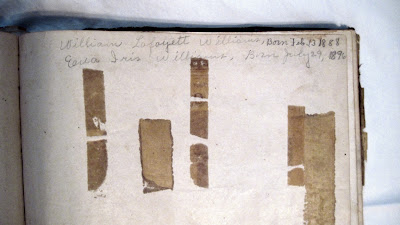 William Lafayett Williams, Born Feb, 13 1888
Iris Williams, Born July 29, 1890